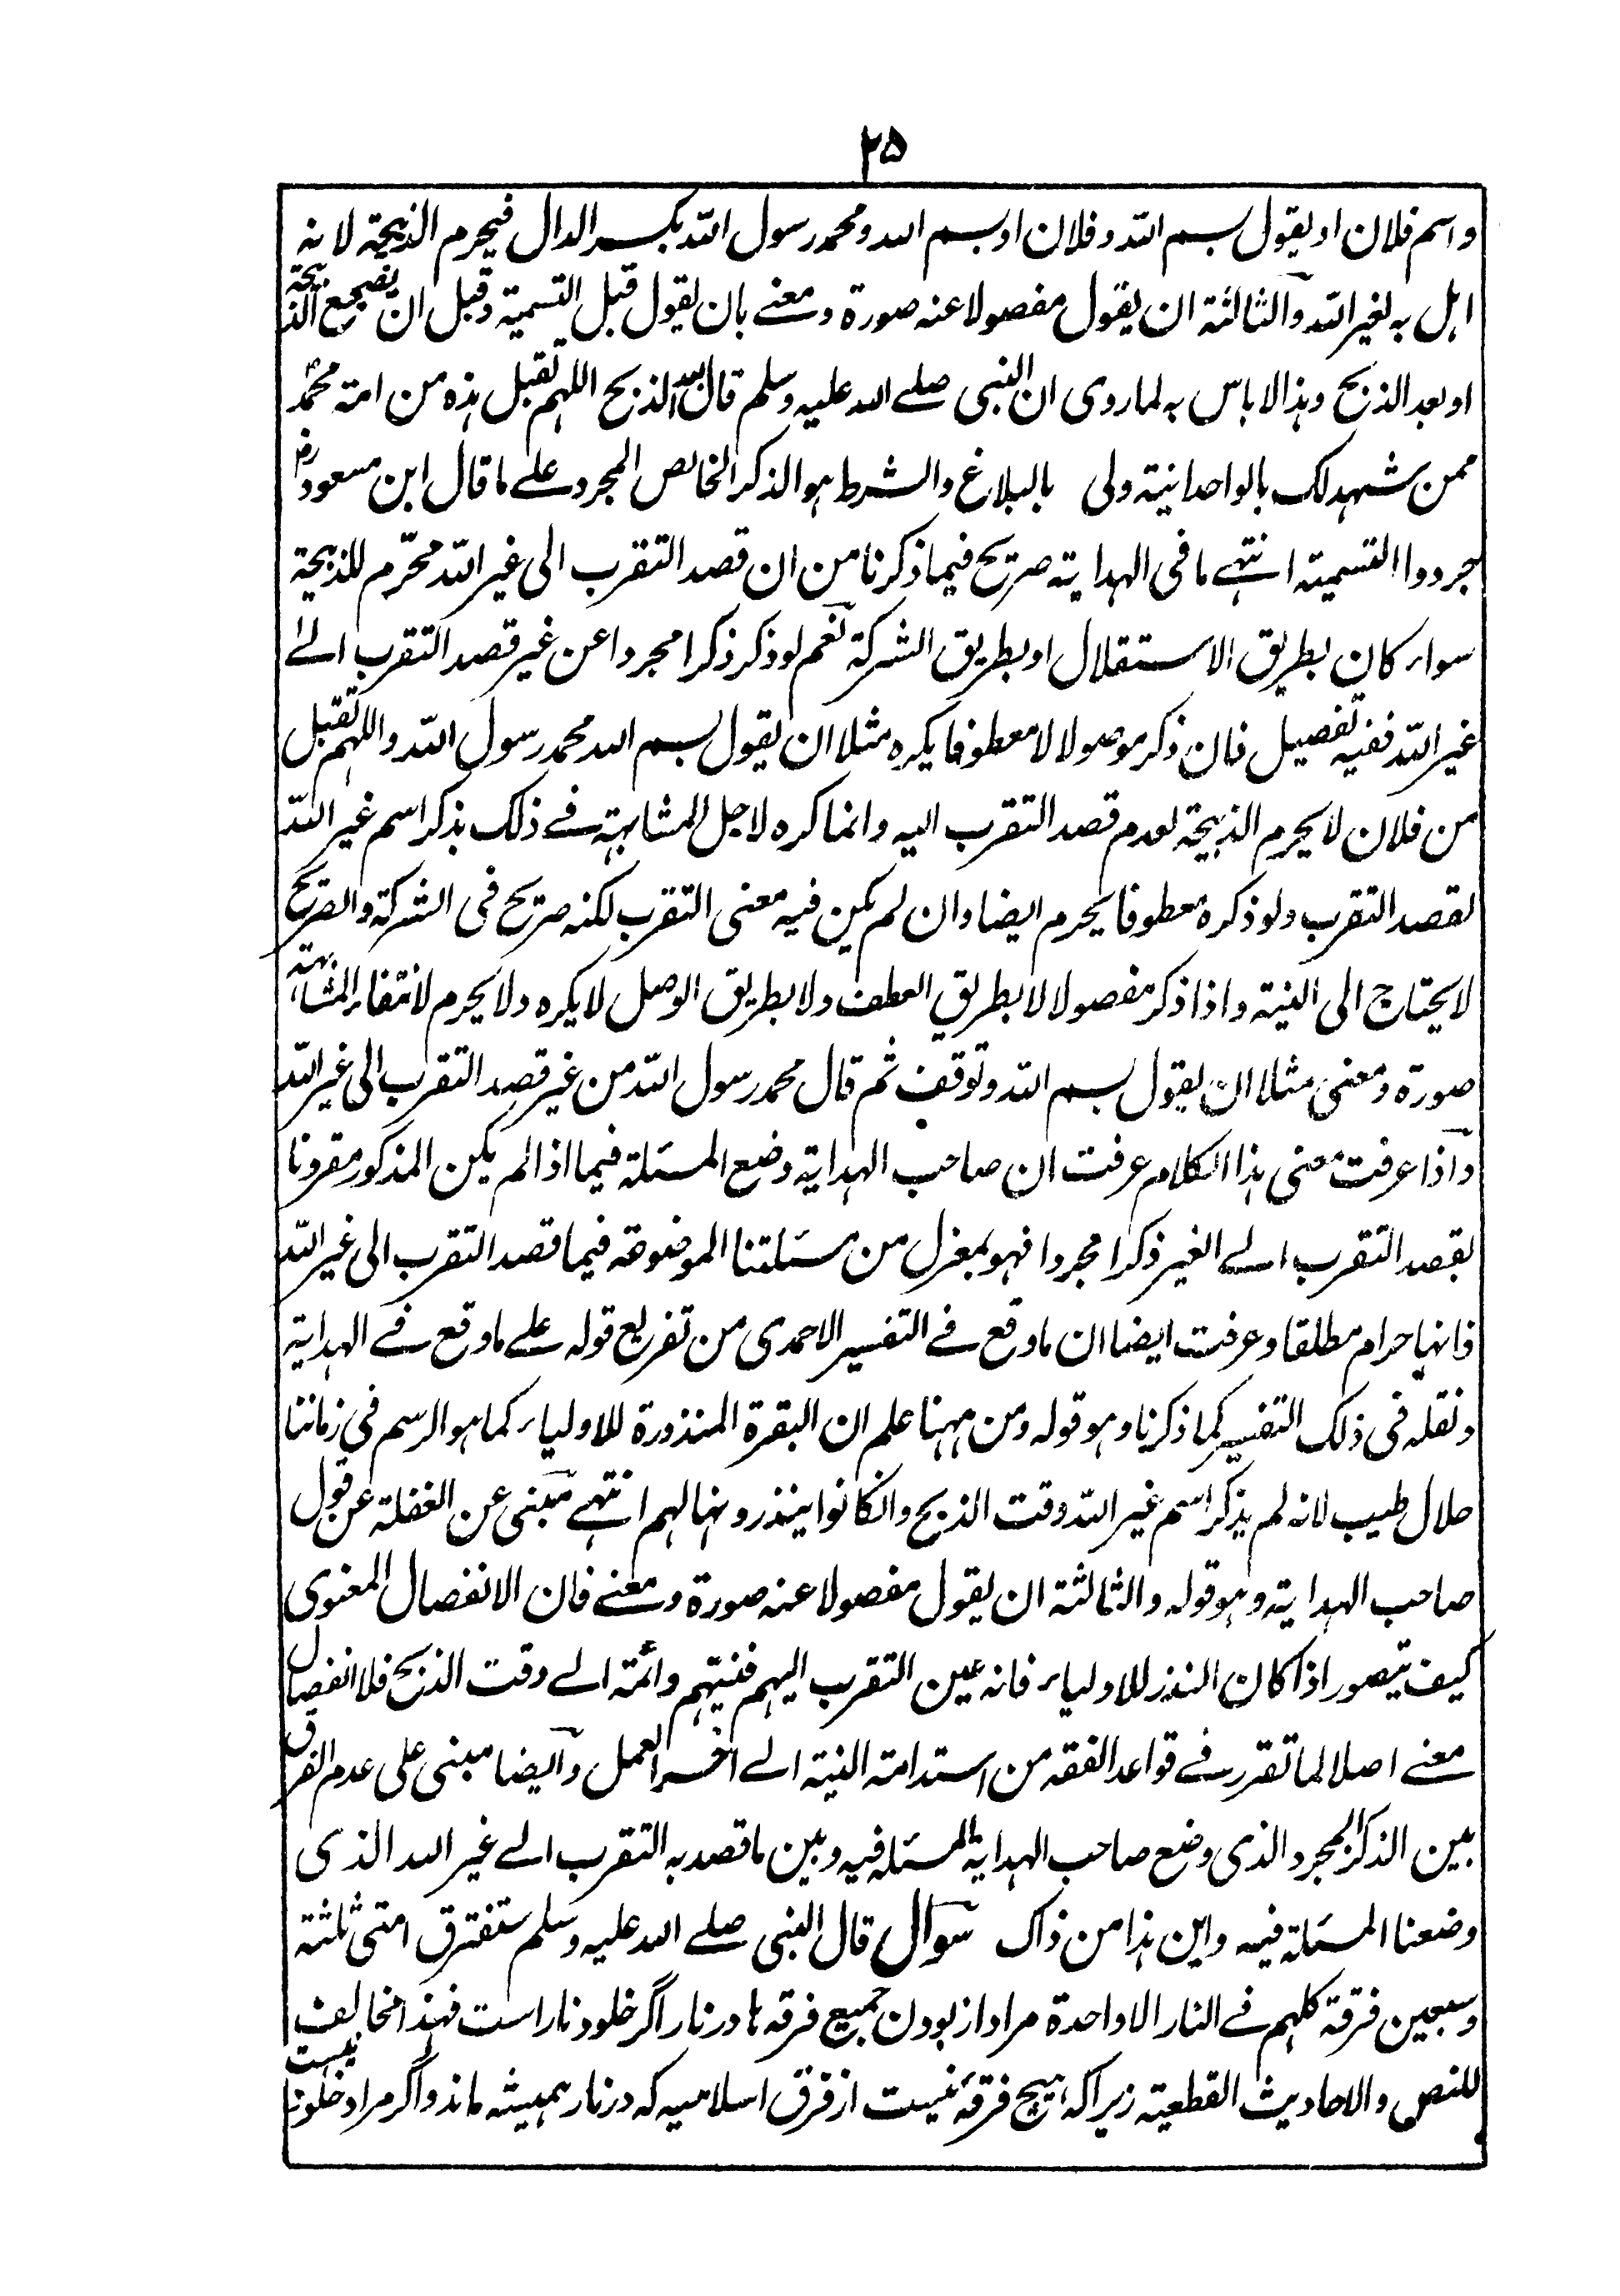 ۲۵
واسم فلان او یقول بسم الله وفلان او بسم الله ومحمد رسول الله بکسر الدال فیحرم الذبیحة لا نه
اہل به لغیر الله والثالثة ان یقول مفصولا عنه صورة و معنے بان یقول قبل التسمیة وقبل ان یضجع الذبیحة
او بعد الذبح وہذا لا باس به لما روی ان النبی صلے الله علیه وسلم قال بعد الذبح اللہم تقبل ہذہ من امة محمد
ممن شہد لک بالواحدانیة ولی بالبلاغ والشرط ہو الذکر الخالص المجرد علے ما قال ابن مسعود رض
جردوا التسمیة انتہے ما فی الہدایة صریح فیما ذکرنا من ان قصد التقرب الی غیر الله محرّم للذبیحة
سواء کان بطریق الاستقلال او بطریق الشرکة نعم لو ذکر ذکرا مجردا عن غیر قصد التقرب الے
غیر الله ففیه تفصیل فان ذکر موصولا لا معطوفا یکرہ مثلا ان یقول بسم الله محمد رسول الله واللہم تقبل
من فلان لا یحرم الذبیحة لعدم قصد التقرب الیه وانما کرہ لاجل المشابہة فے ذلک بذکر اسم غیر الله
لقصد التقرب ولو ذکرہ معطوفا یحرم ایضا وان لم یکن فیه معنی التقرب لکنه صریح فی الشرکة والصریح
لا یحتاج الی النیة واذا ذکر مفصولا لا بطریق العطف ولا بطریق الوصل لا یکرہ ولا یحرم لانتفاء المشابہة
صورة ومعنی مثلا ان یقول بسم الله وتوقف ثم قال محمد رسول الله من غیر قصد التقرب الی غیر الله
واذا عرفت معنی ہذا الکلام عرفت ان صاحب الہدایة وضع المسئلة فیما اذا لم یکن المذکور مقرونا
بقصد التقرب الے الغیر ذکرا مجردا فہو بمعزل من مسئلتنا الموضوعة فیما قصد التقرب الی غیر الله
فانہا حرام مطلقا وعرفت ایضا ان ما وقع فے التفسیر الاحمدی من تفریع قوله علے ما وقع فے الہدایة
ونقله فی ذلک التفسیر کما ذکرنا وہو قوله ومن ہہنا علم ان البقرة المنذورة للاولیاء کما ہو الرسم فی زماننا
حلال طیب لانه لم یذکر اسم غیر الله وقت الذبح وانکانوا ینذرونہا لہم انتہے مبنی عن الغفلة عن قول
صاحب الہدایة وہو قوله والثالثة ان یقول مفصولا عنه صورة ومعنے فان الانفصال المعنوی
کیف یتصور اذا کان النذر للاولیاء فانه عین التقرب الیہم فنیتہم دائمة الے وقت الذبح فلا انفصال
معنے اصلا لما تقرر فے قواعد الفقه من استدامة النیة الے اخر العمل وایضا مبنی علی عدم الفرق
بین الذکر المجرد الذی وضع صاحب الہدایة المسئلة فیه وبین ما قصد به التقرب الے غیر الله الذی
وضعنا المسئلة فیه واین ہذا من ذاک سوال قال النبی صلے الله علیه وسلم ستفترق امتی ثلثة
وسبعین فرقة کلہم فے النار الا واحدة مراد از بودن جمیع فرقه ہا در نار اگر خلود نار است فہذا مخالف
للنص والاحادیث القطعیة زیرا که ہیچ فرقهٔ نیست از فرق اسلامیه که در نار ہمیشه ماند واگر مراد خلود نار نیست